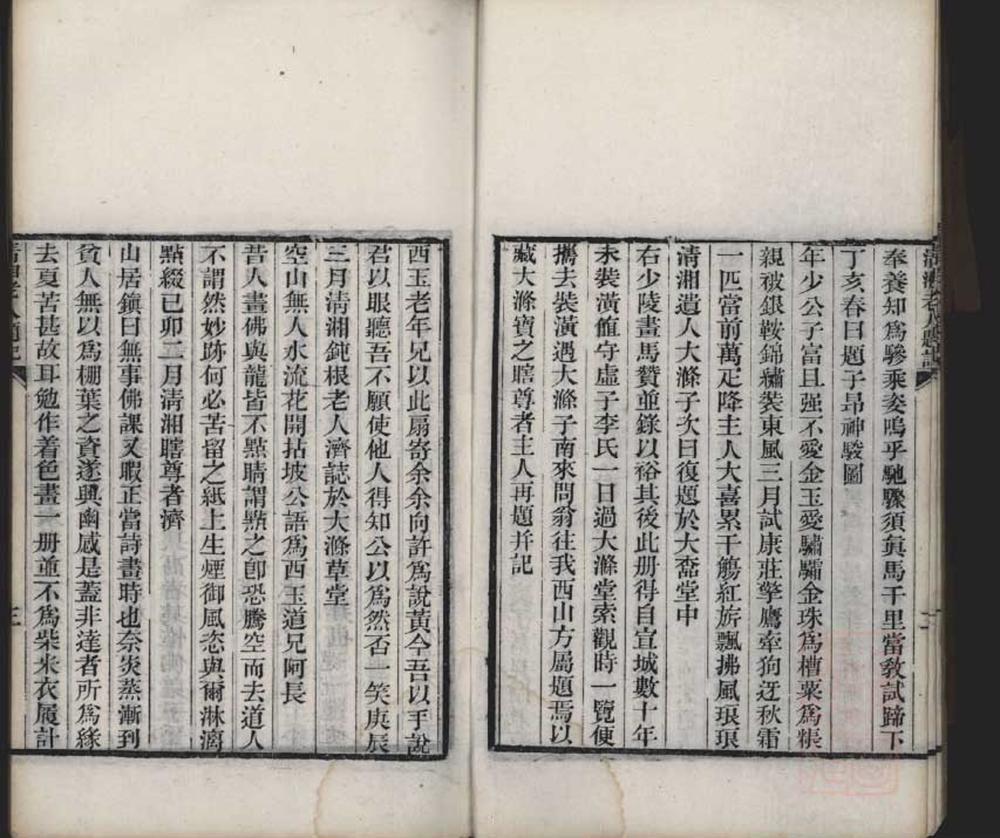 清湘老人題記
奉養知爲驂乘妾嗚乎馳驟須眞馬千里當敎試蹄下
丁亥春日題子昻神駿圖
年少公子富且强不愛金玉愛驌驦金珠爲槽粟爲粻
親被銀鞍錦繡裝東風三月試康莊擎鷹牽狗迓秋霜
一匹當前萬疋降主人大喜累千觴紅旂飄拂風琅琅
清湘遺人大滌子次日復題於大斋堂中
右少陵畫馬贊並錄以裕其後此册得自宣城數十年
未裝潢館守虛子李氏一日過大滌堂索觀時一覽便
攜去裝潢過大滌子南來問翁往我西山方屬題焉以
藏大滌寶之瞎尊者主人再題幷記
西玉老年兄以此扇寄余余向許爲說黃今吾以手說
君以眼聽吾不願使他人得知公以爲然否一笑庚辰
三月清湘鈍根老人濟誌於大滌草堂
空山無人水流花開拈坡公語爲西玉道兄阿長
昔人畫佛與龍皆不點睛謂點之卽恐騰空而去道人
不謂然妙跡何必苦留之紙上生煙御風恣與爾淋漓
點綴己卯二月清湘瞎尊者濟
山居鎭日無事佛課又暇正當詩畫時也奈炎蒸漸到
貧人無以爲棚葉之資遂興幽慼是蓋非達者所爲緣
去夏苦甚故耳勉作着色畫一册並不爲柴米衣履計
三